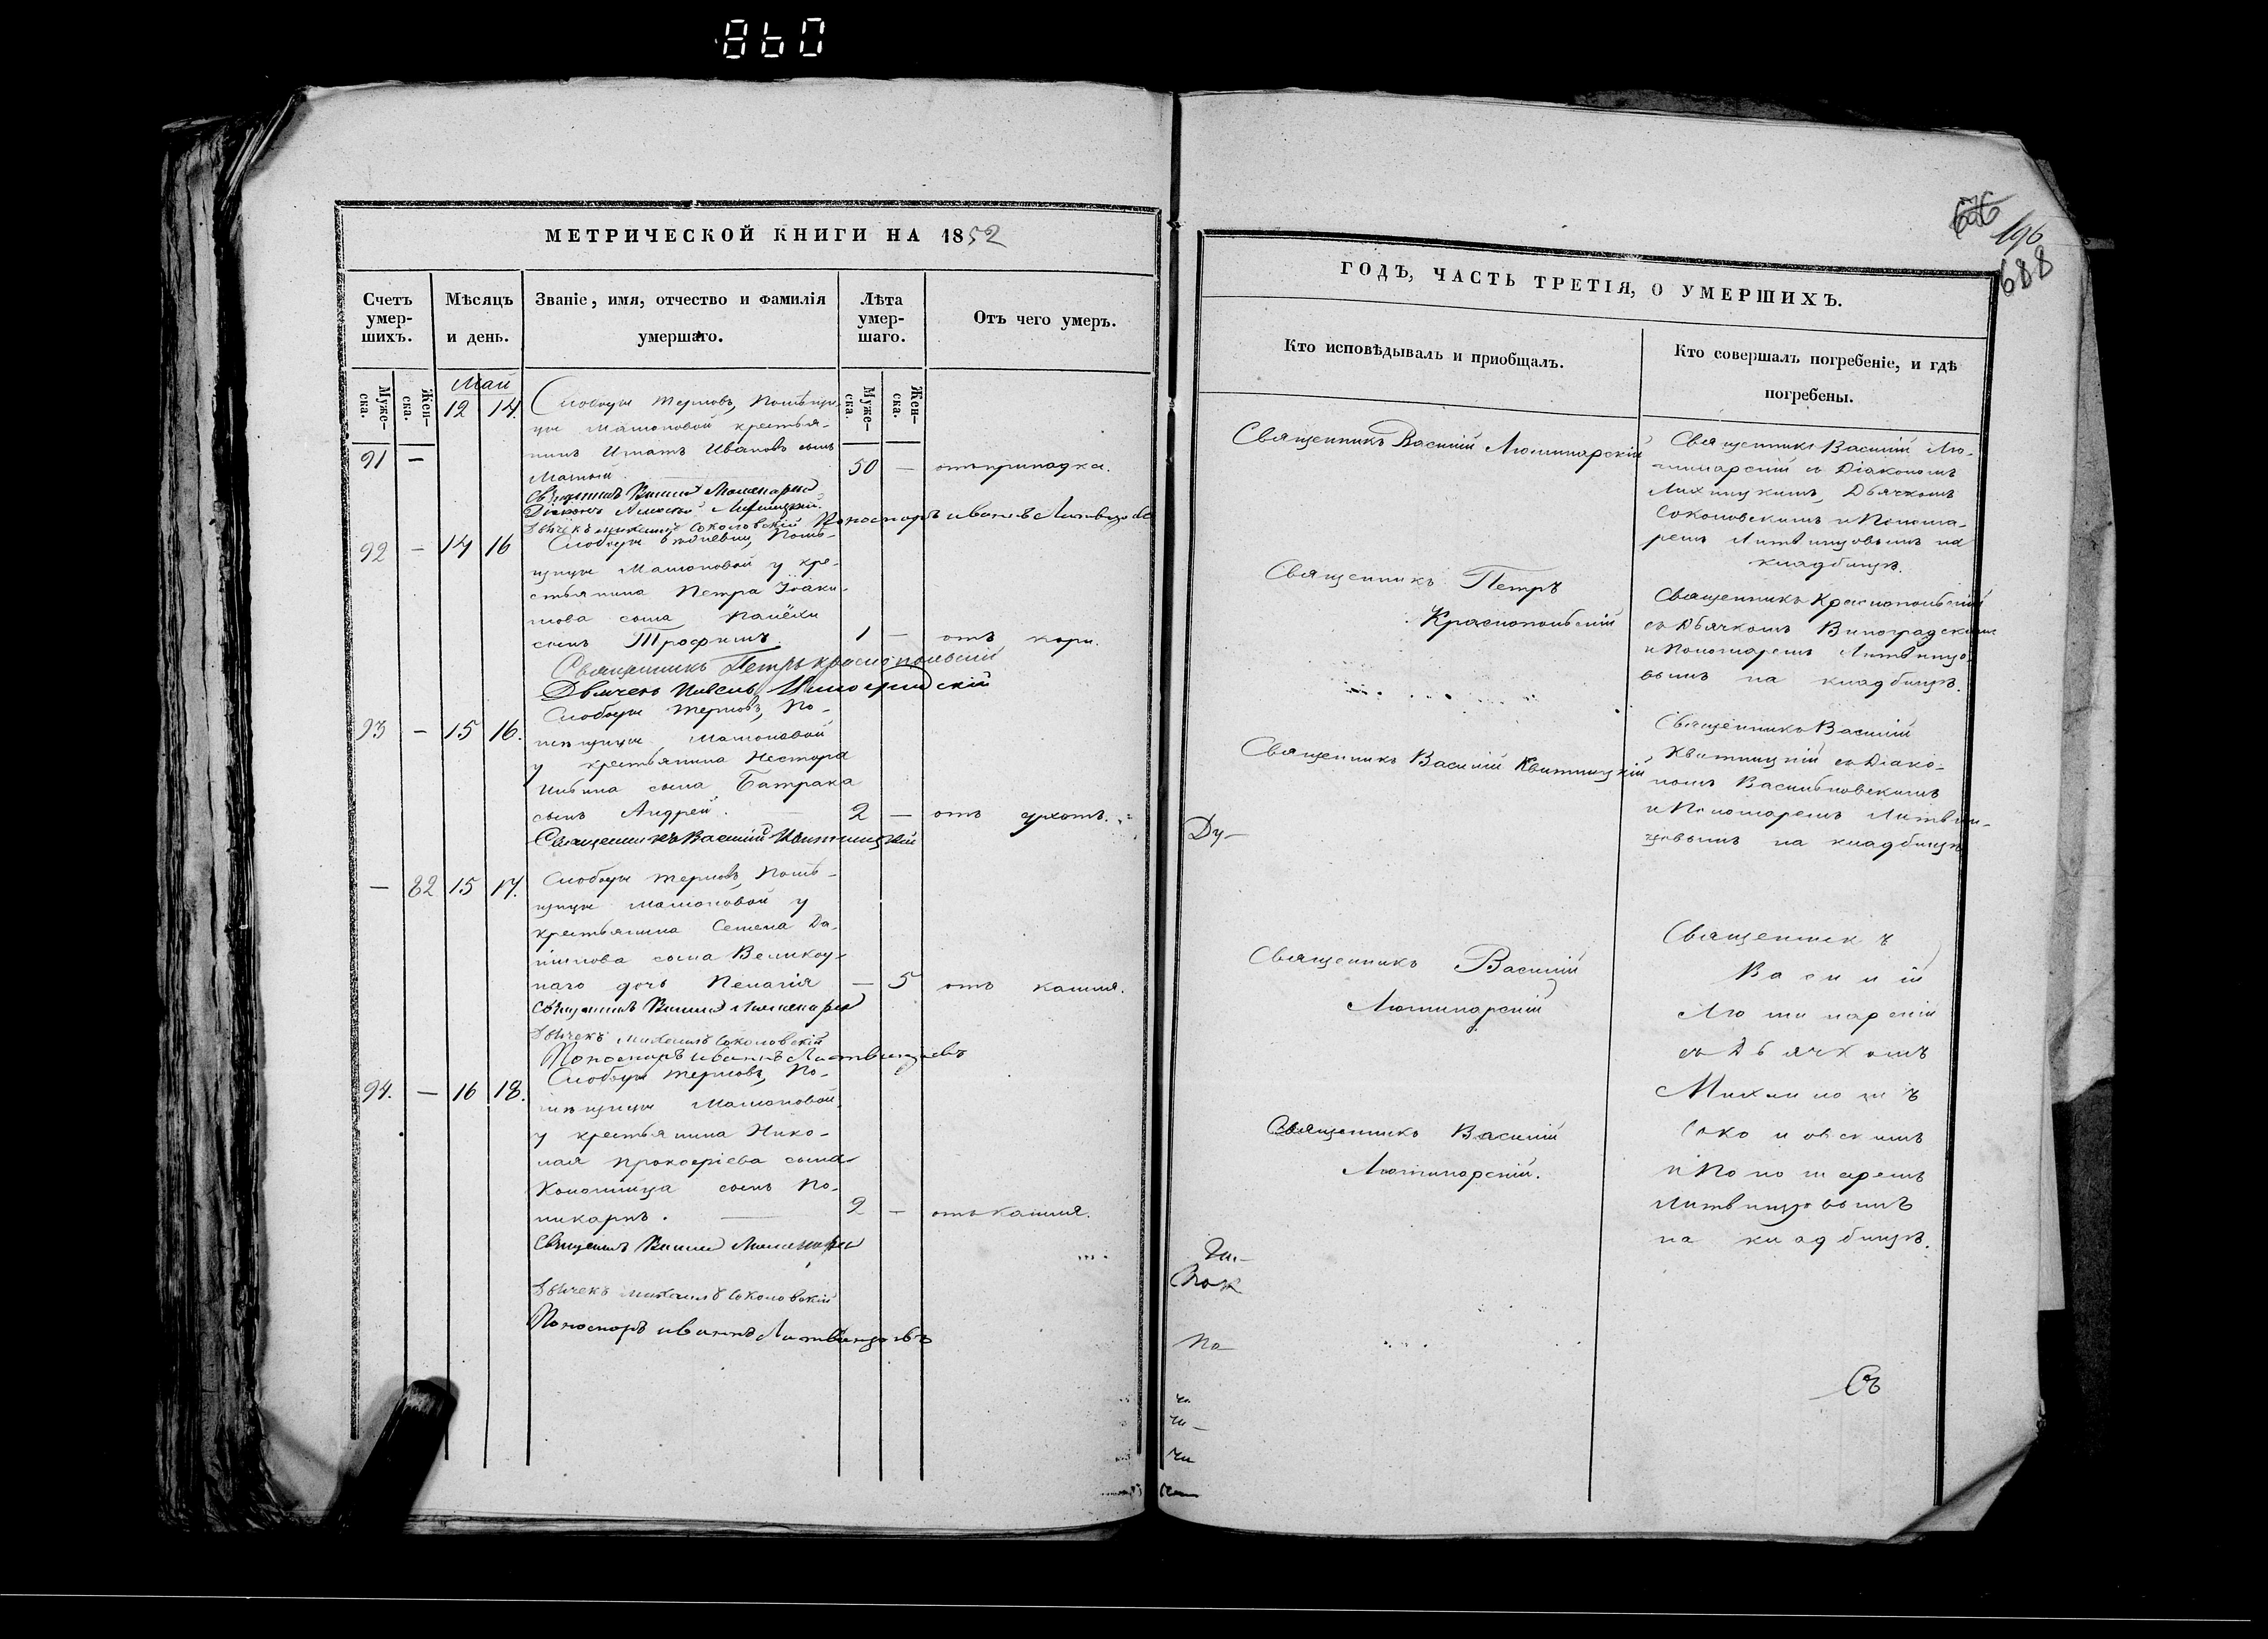 860
МЕТРИЧЕСКОЙ КНИГИ НА 1852
Счетъ умер-шихъ.
Мѣсяцъ и день.
Званіе, имя, отчество и фамилія умершаго.
Лѣта умер-шаго.
Отъ чего умеръ.
Муже-ска.
Жен-ска.
Май
Муже-ска.
Жен-ска.
91 — 12 14.
Слободы Терновъ, Помѣщи-
цы Машоновой крестья-
нинъ Игнатъ Ивановъ сынъ
50 — отъ припадка.
Священникъ Василій
Діаконъ
Дьячекъ Михаилъ Соколовскій Пономарь Иванъ Литвинцовъ
92 — 14 16
Слободы Помѣ-
щицы Машоновой у кре-
стьянина Петра Іоаки-
мова сына
сынъ Трофимъ. 1 — отъ кори.
Священникъ Петръ Краснопольскій
Дьячекъ Павелъ Виноградскій
93 — 15 16.
Слободы Терновъ, По-
мѣщицы Машоновой
у крестьянина Нестора
Ильина сына Батрака
сынъ Андрей. 2 — отъ сухотъ.
Священникъ Василій Квитницкій
— 82 15 17.
Слободы Терновъ, Помѣ-
щицы Машоновой у
крестьянина Семена Да-
нилова сына Великод-
наго дочь Пелагія — 5 отъ кашля.
Священникъ Василій
Дьячекъ Михаилъ Соколовскій
Пономарь Иванъ Литвинцовъ
94. — 16 18.
Слободы Терновъ, По-
мѣщицы Машоновой,
у крестьянина Нико-
лая сына
Коломійца сынъ По-
ликарпъ. 2 — отъ кашля.
Священникъ Василій
Дьячекъ Михаилъ Соколовскій
Пономарь Иванъ Литвинцовъ
676
196
688
ГОДЪ, ЧАСТЬ ТРЕТІЯ, О УМЕРШИХЪ.
Кто исповѣдывалъ и пріобщалъ.
Кто совершалъ погребеніе, и гдѣ погребены.
Священникъ Василій Люминарскій
Священникъ Василій Лю-
минарскій съ Діакономъ
Дьячкомъ
Соколовскимъ и Понома-
ремъ Литвинцовымъ на
кладбищѣ.
Священникъ Петръ
Краснопольскій
Священникъ Краснопольскій
съ Дьячкомъ Виноградскимъ
и Пономаремъ Литвинцо-
вымъ на кладбищѣ.
Священникъ Василій Квитницкій
Священникъ Василій
Квитницкій съ Діако-
номъ Васильковскимъ
и Пономаремъ Литвин-
цовымъ на кладбищѣ
Ду-
Священникъ Василій
Люминарскій
Священникъ
Василій
Люминарскій
съ Дьячкомъ
Михаиломъ
Соколовскимъ
и Пономаремъ
Литвинцовымъ
на кладбищѣ.
Священникъ Василій
Люминарскій.
По
Съ